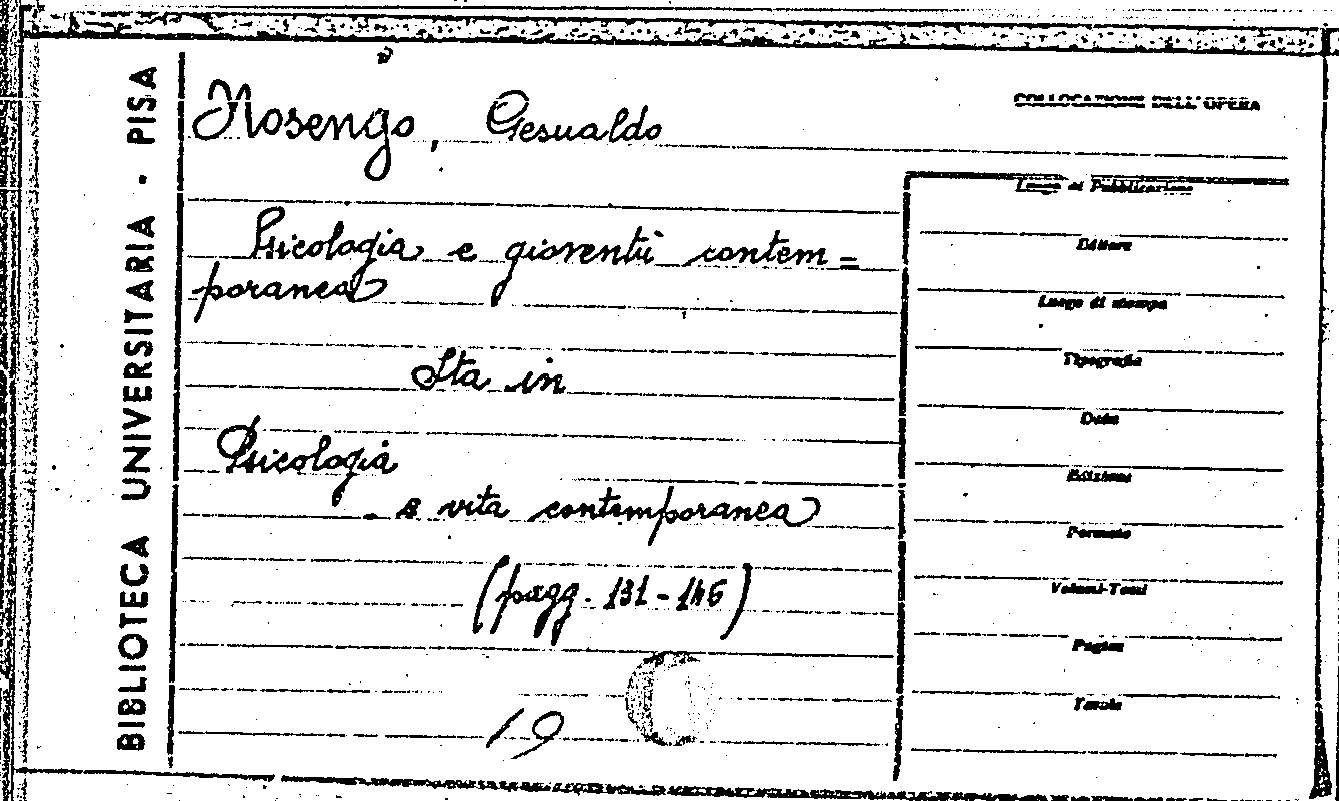 BIBLIOTECA UNIVERSITARIA · PISA
Nosengo, Gesualdo
COLLOCAZIONE DELL'OPERA
Psicologia e gioventù contem=
poranea
Sta in
Psicologia
e vita contemporanea
(pagg. 131-146)
19
Luogo di Pubblicazione
Editore
Luogo di stampa
Tipografia
Data
Edizione
Formato
Volumi-Tomi
Pagine
Tavole